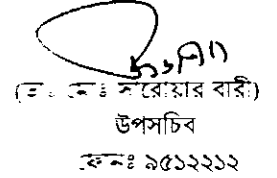 সরোয়ার বারী)
উপসচিব
ফোনঃ ৯৫১২২১২